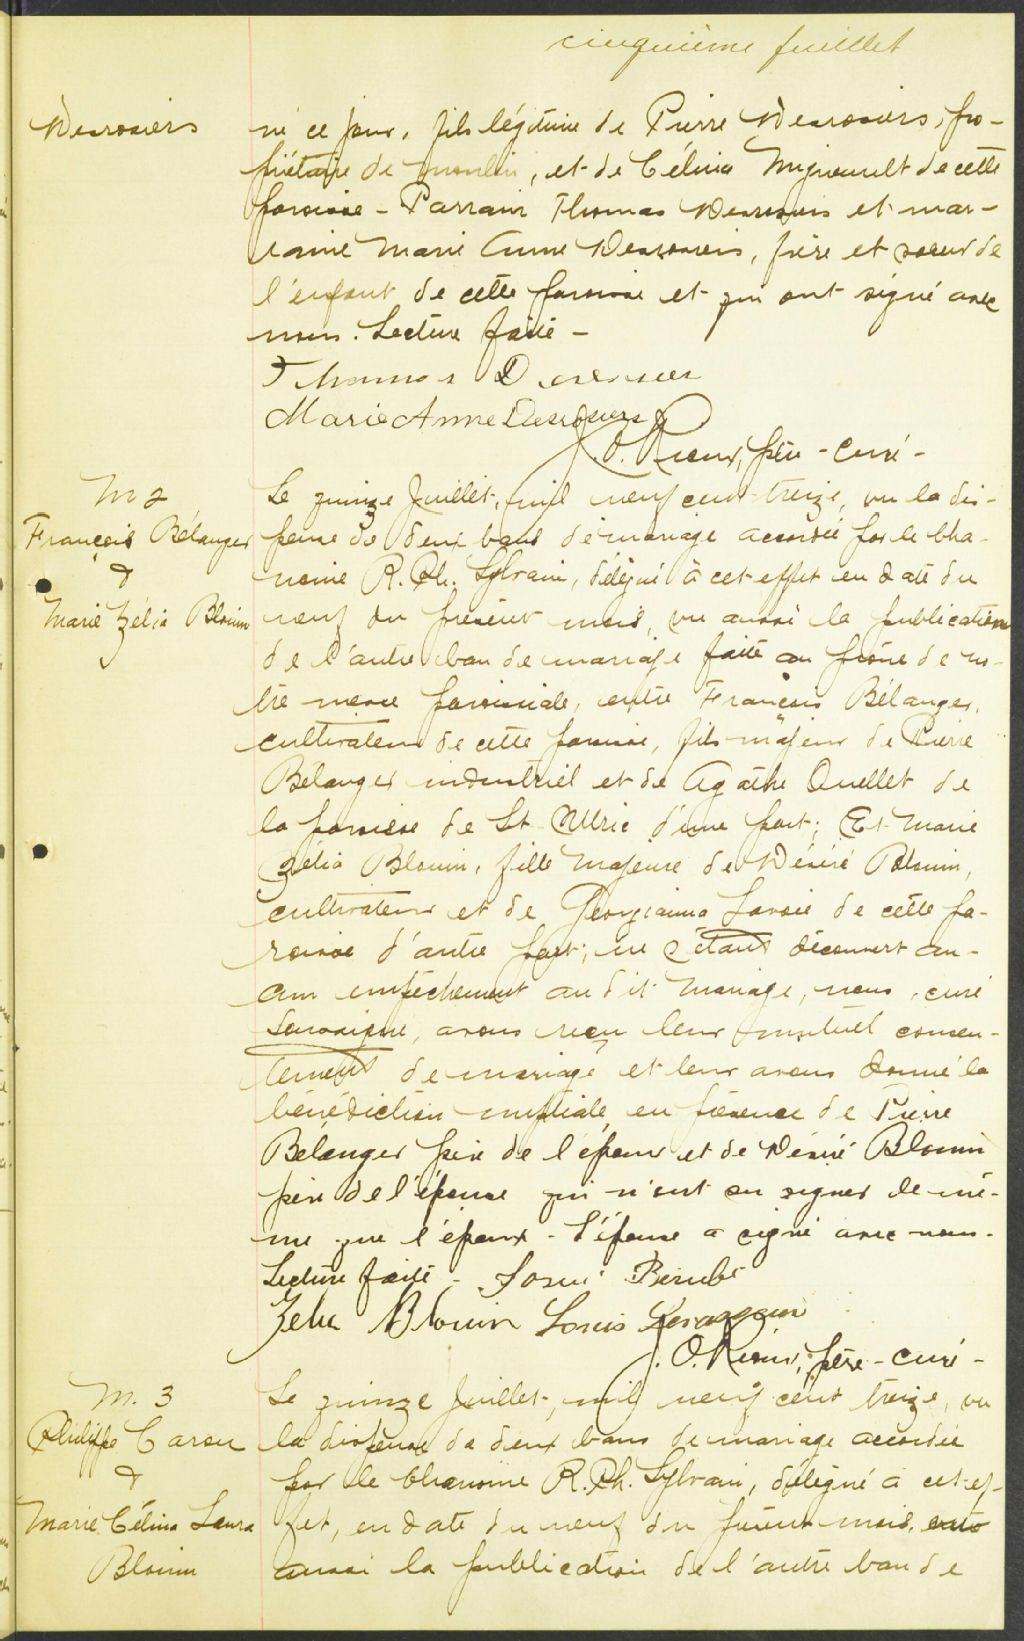 cinquième feuillet
Desrosiers
né ce jour, fils légitime de Pierre Desrosiers, pro-
priétaire de moulin, et de Célina Migneault de cette
paroisse - Parrain Thomas Desrosiers et mar-
raine Marie Anne Desrosiers, frère et soeur de
l'enfant de cette paroisse et qui ont signé avec
nous. Lecture faite -
Thomas Desrosiers
Marie Anne Desrosiers
J. O. Rioux, ptre - curé -
M 2
François Bélanger
&
Marie Zélia Blouin
Le quinze Juillet, mil neuf cent treize, vu la dis-
pense de deux bans de mariage accordée par le Cha-
noine R. Ph. Sylvain, délégué à cet effet en date du
neuf du présent mois, vu aussi la publication
de l'autre ban de mariage faite au prône de no-
tre messe paroissiale, entre François Bélanger,
cultivateur de cette paroisse, fils majeur de Pierre
Bélanger industriel et de Agathe Ouellet de
la paroisse de St Ulric d'une part; Et Marie
Zélia Blouin, fille majeure de Désiré Blouin,
cultivateur et de Georgianna Savoie de cette pa-
roisse d'autre part; ne s'étant découvert au-
cun empêchement au dit mariage, nous, curé
soussigné, avons reçu leur mutuel consen-
tement de mariage et leur avons donné la
bénédiction nuptiale en présence de Pierre
Bélanger père de l'époux et de Désiré Blouin
père de l'épouse qui n'ont su signer de mê-
me que l'époux - L'épouse a signé avec nous.
Lecture faite - Bérubé
Zelia Blouin Louis
J. O. Rioux, ptre - curé -
M. 3
Philippe Caron
&
Marie Célina Laura
Blouin
Le quinze Juillet, mil neuf cent treize, vu
la dispense de deux bans de mariage accordée
par le Chanoine R. Ph. Sylvain, délégué à cet ef-
fet, en date du neuf du présent mois,
aussi la publication de l'autre ban de